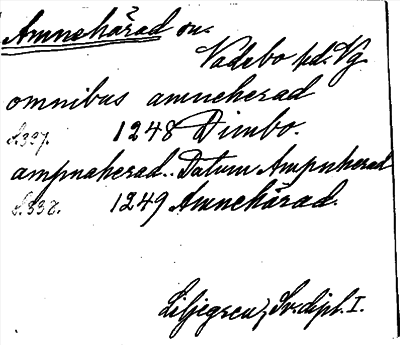 Amnehärad sn.
Vadsbo hd. Vg.
omnibus amneherad
S. 337. 1248 Dimbo.
ampnaherad. Datum Ampnherad
S. 338. 1249 Amnehärad.
Liljegren, Sv. dipl. I.